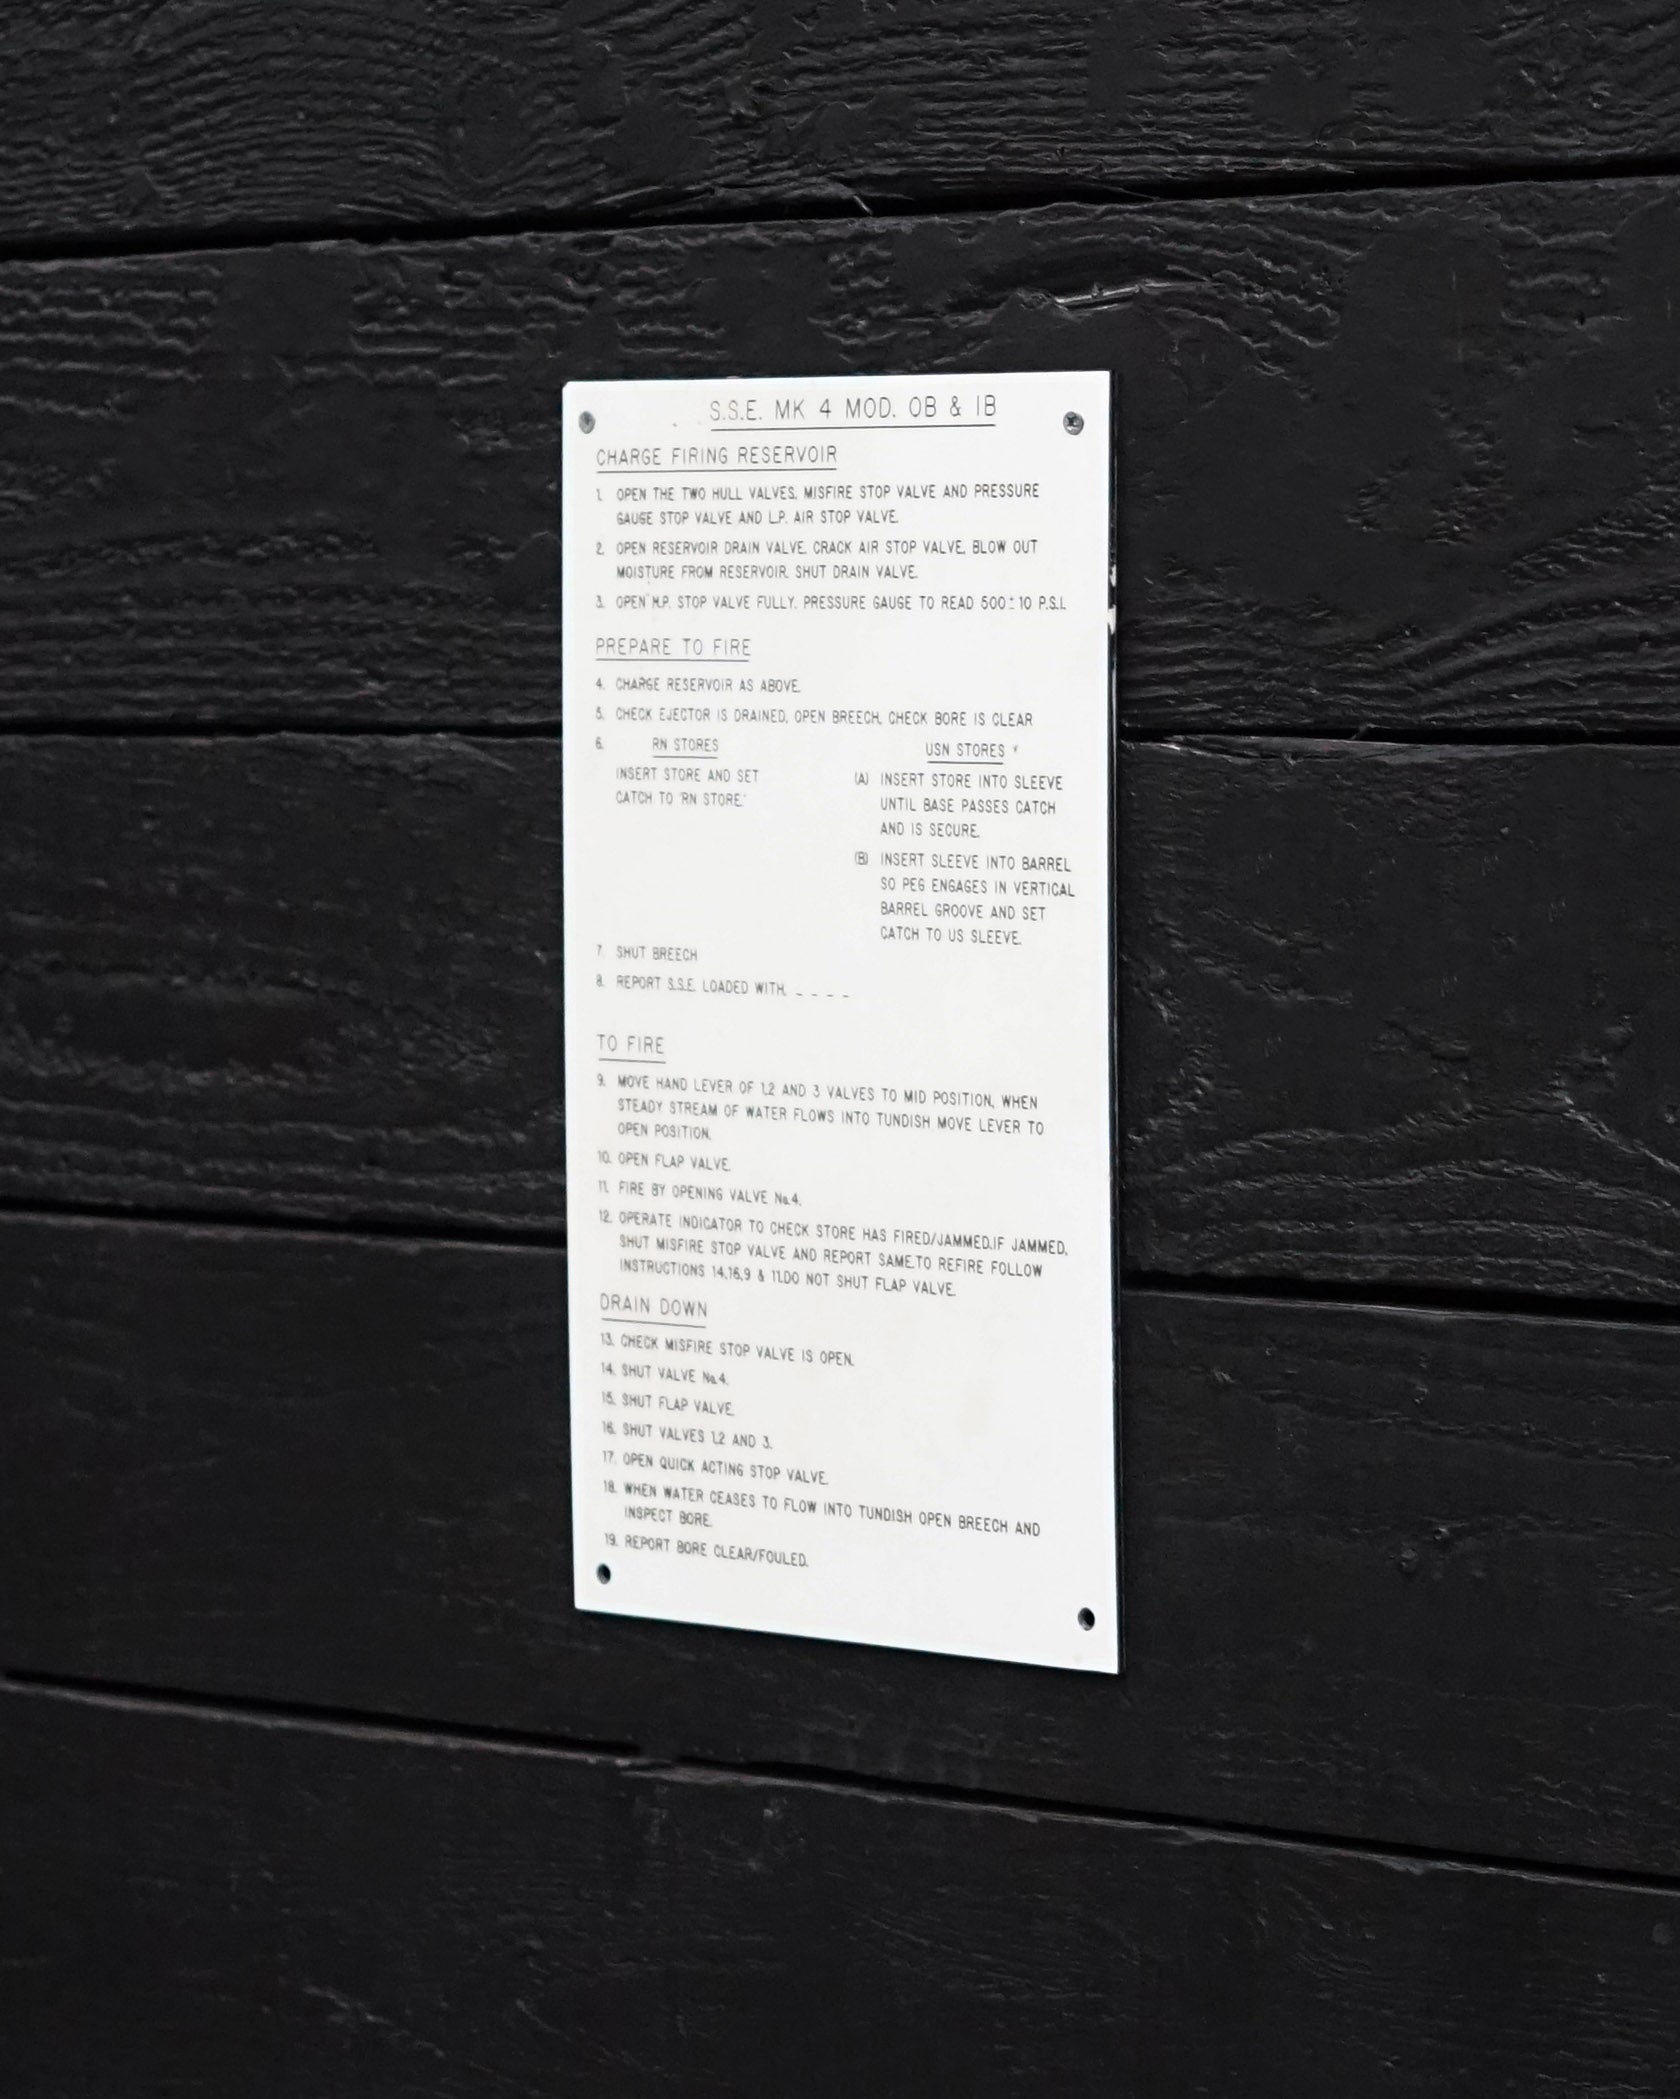 S.S.E. MK 4 MOD. OB & 1B
CHARGE FIRING RESERVOIR
1. OPEN THE TWO HULL VALVES, MISFIRE STOP VALVE AND PRESSURE
GAUGE STOP VALVE AND L.P. AIR STOP VALVE.
2. OPEN RESERVOIR DRAIN VALVE. CRACK AIR STOP VALVE. BLOW OUT
MOISTURE FROM RESERVOIR. SHUT DRAIN VALVE.
3. OPEN H.P. STOP VALVE FULLY. PRESSURE GAUGE TO READ 500±10 P.S.I.
PREPARE TO FIRE
4. CHARGE RESERVOIR AS ABOVE.
5. CHECK EJECTOR IS DRAINED, OPEN BREECH, CHECK BORE IS CLEAR
6. RN STORES
INSERT STORE AND SET
CATCH TO 'RN STORE.'
USN STORES
(A) INSERT STORE INTO SLEEVE
UNTIL BASE PASSES CATCH
AND IS SECURE.
(B) INSERT SLEEVE INTO BARREL
SO PEG ENGAGES IN VERTICAL
BARREL GROOVE AND SET
CATCH TO US SLEEVE.
7. SHUT BREECH
8. REPORT S.S.E. LOADED WITH. _ _ _ _
TO FIRE
9. MOVE HAND LEVER OF 1,2 AND 3 VALVES TO MID POSITION, WHEN
STEADY STREAM OF WATER FLOWS INTO TUNDISH MOVE LEVER TO
OPEN POSITION.
10. OPEN FLAP VALVE.
11. FIRE BY OPENING VALVE No.4.
12. OPERATE INDICATOR TO CHECK STORE HAS FIRED/JAMMED.IF JAMMED,
SHUT MISFIRE STOP VALVE AND REPORT SAME.TO REFIRE FOLLOW
INSTRUCTIONS 14,16,9 & 11.DO NOT SHUT FLAP VALVE.
DRAIN DOWN
13. CHECK MISFIRE STOP VALVE IS OPEN.
14. SHUT VALVE No.4.
15. SHUT FLAP VALVE.
16. SHUT VALVES 1,2 AND 3.
17. OPEN QUICK ACTING STOP VALVE.
18. WHEN WATER CEASES TO FLOW INTO TUNDISH OPEN BREECH AND
INSPECT BORE.
19. REPORT BORE CLEAR/FOULED.